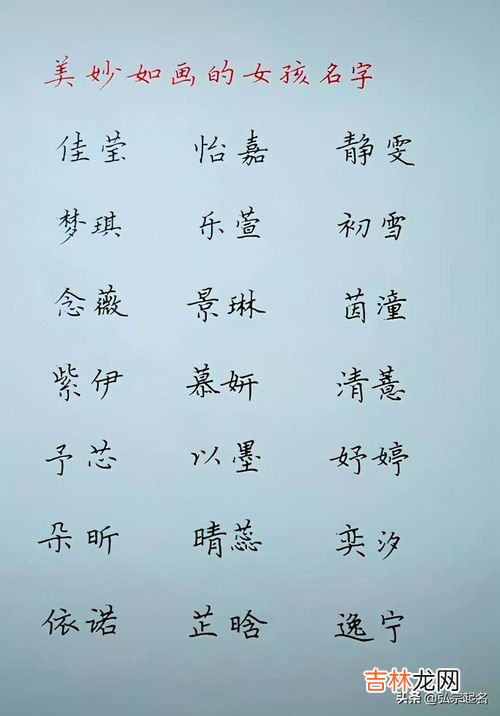 美妙如画的女孩名字
佳莹 怡嘉 静雯
梦琪 乐萱 初雪
念薇 景琳 茵潼
紫伊 慕妍 清薏
予芯 以墨 妤婷
朵昕 晴蕊 奕汐
依诺 芷晗 逸宁
吉林龙网
头条 @弘宗起名